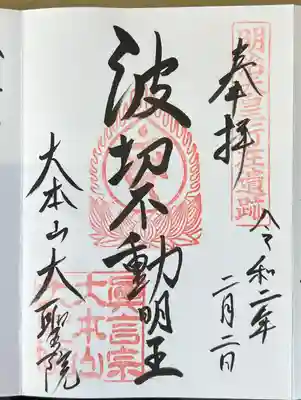 明治天皇行在遺跡
奉拝
令和二年
二月二日
波切不動明王
眞言宗
大本山
大本山大聖院